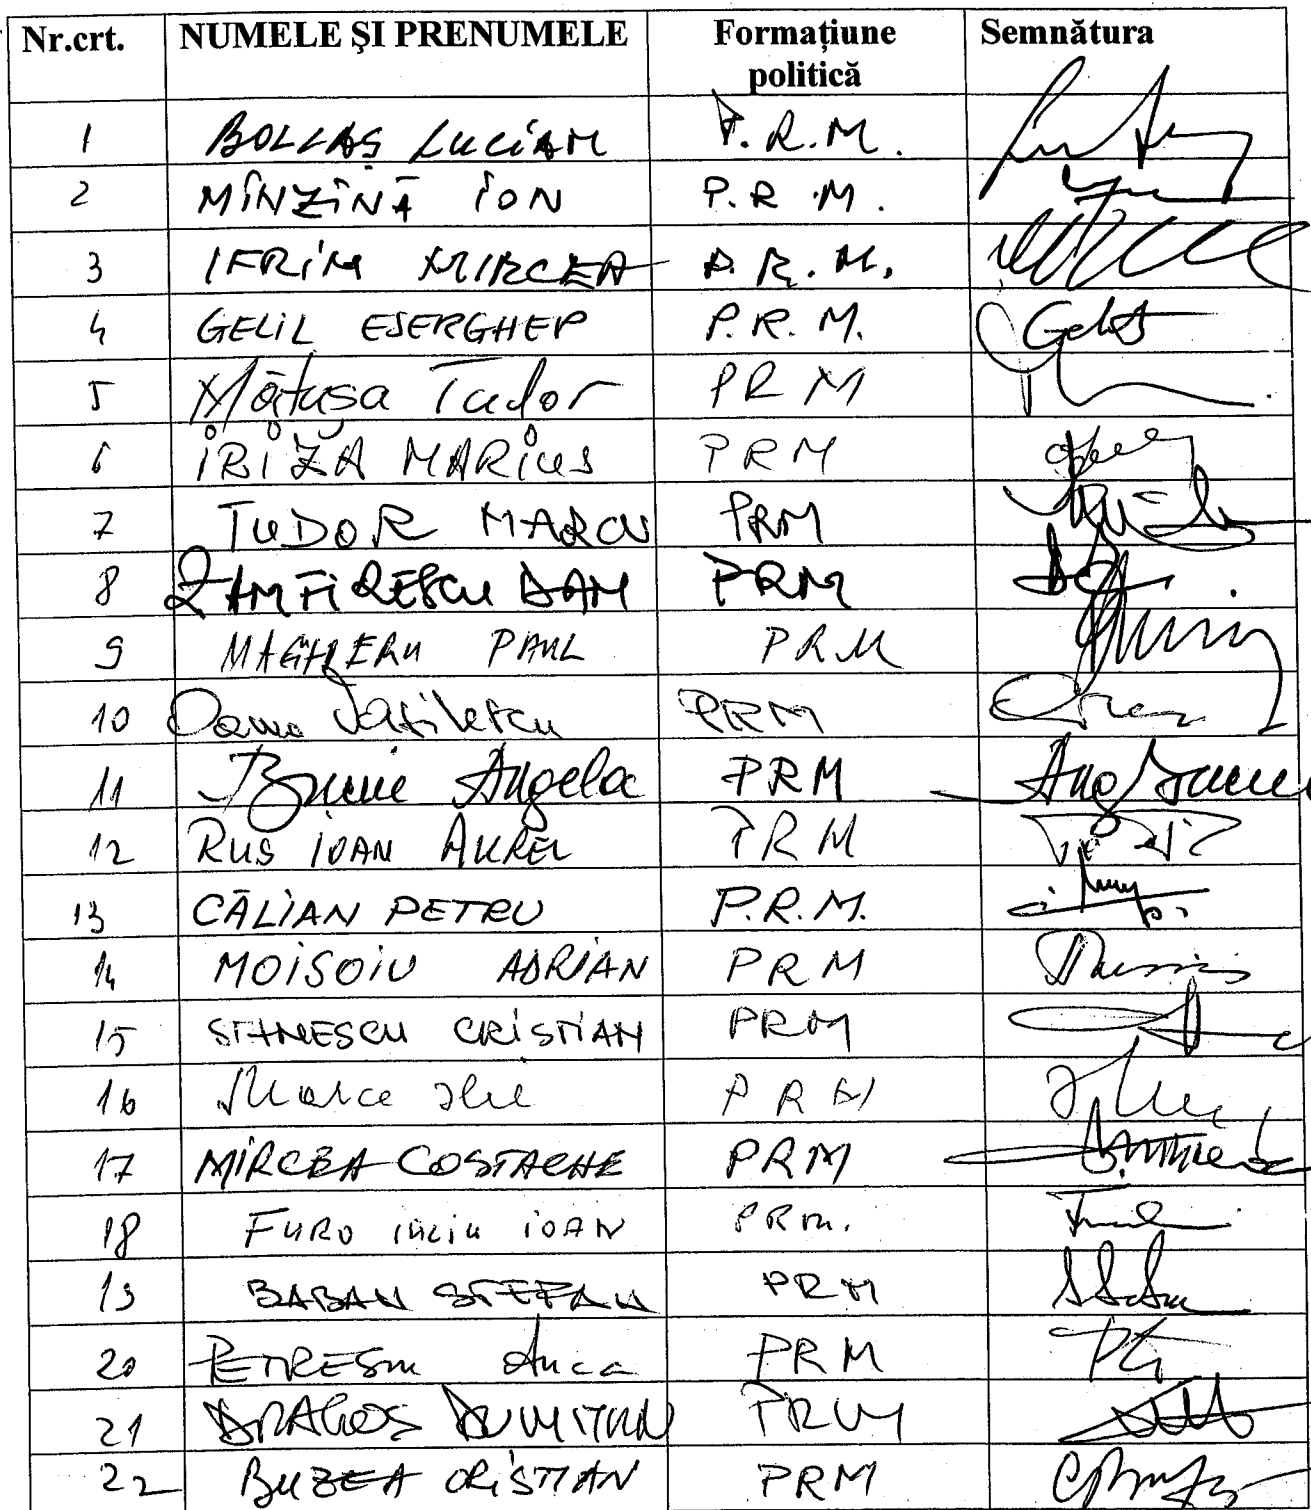 Nr.crt. NUMELE ŞI PRENUMELE Formațiune politică Semnătura
1 BOLCAŞ LUCIAN P.R.M.
2 MÎNZÎNĂ ION P.R.M.
3 IFRIM MIRCEA P.R.M.
4 GELIL ESERGHEP P.R.M.
5 Mătușa Tudor PRM
6 IRIZĂ MARIUS PRM
7 TUDOR MARCU PRM
8 ZAMFIRESCU DAN PRM
9 MAGHERU PAUL PRM
10 PRM
11 Angela PRM
12 RUS IOAN AUREL PRM
13 CĂLIAN PETRU P.R.M.
14 MOISOIU ADRIAN PRM
15 STANESCU CRISTIAN PRM
16 Merce Ilie PRM
17 MIRCEA COSTACHE PRM
18 FURO IULIU IOAN PRM.
19 BABAN STEFAN PRM
20 PETRESCU Anca PRM
21 DRAGOS DUMITRU PRM
22 BUZEA CRISTIAN PRM